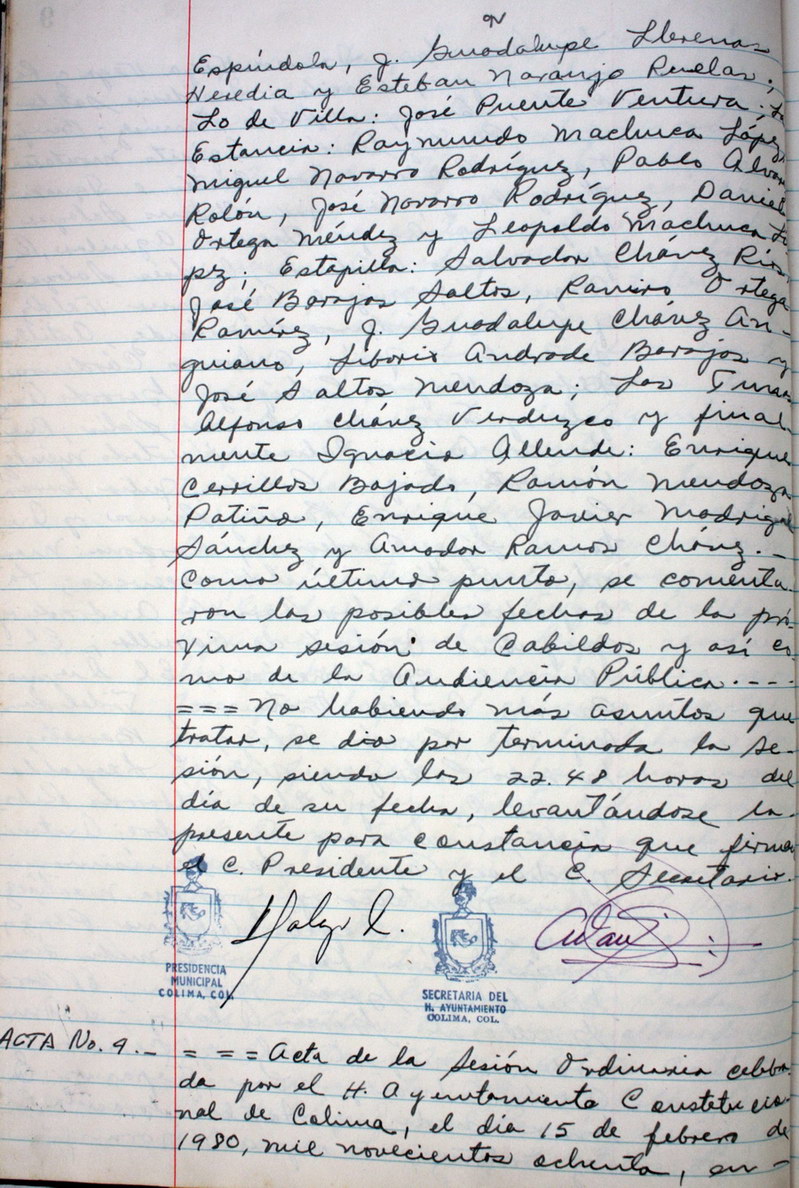 Espíndola, J. Guadalupe Llerenas
Heredia y Esteban Naranjo Ruelas;
Lo de Villa: José Puente Ventura; La
Estancia: Raymundo Machuca López,
Miguel Navarro Rodríguez, Pablo Alva
Rolón, José Navarro Rodríguez, Daniel
Ortega Méndez y Leopoldo Machuca Ló
pez; Estapilla: Salvador Chávez Ríos,
José Barajas Saltos, Ramiro Ortega
Ramírez, J. Guadalupe Chávez An-
guiano, Liborio Andrade Barajas y
José Saltos Mendoza; Las Tunas
Alfonso Chávez Verduzco y final-
mente Ignacio Allende: Enrique
Cerrillos Bajado, Ramón Mendoza
Patiño, Enrique Javier Madrigal
Sánchez y Amador Ramos Chávez.-
Como último punto, se comenta-
ron las posibles fechas de la pró-
xima sesión de Cabildos y así co-
mo de la Audiencia Pública.----
===No habiendo más asuntos que
tratar, se dio por terminada la se-
sión, siendo las 22.48 horas del
día de su fecha, levantándose la
presente para constancia que firma
el C. Presidente y el C. Secretario.
PRESIDENCIA
MUNICIPAL
COLIMA, COL.
SECRETARIA DEL
H. AYUNTAMIENTO
COLIMA, COL.
ACTA No. 9.- ===Acta de la Sesión Ordinaria celebra-
da por el H. Ayuntamiento Constitucio-
nal de Colima, el día 15 de febrero de
1980, mil novecientos ochenta, en-